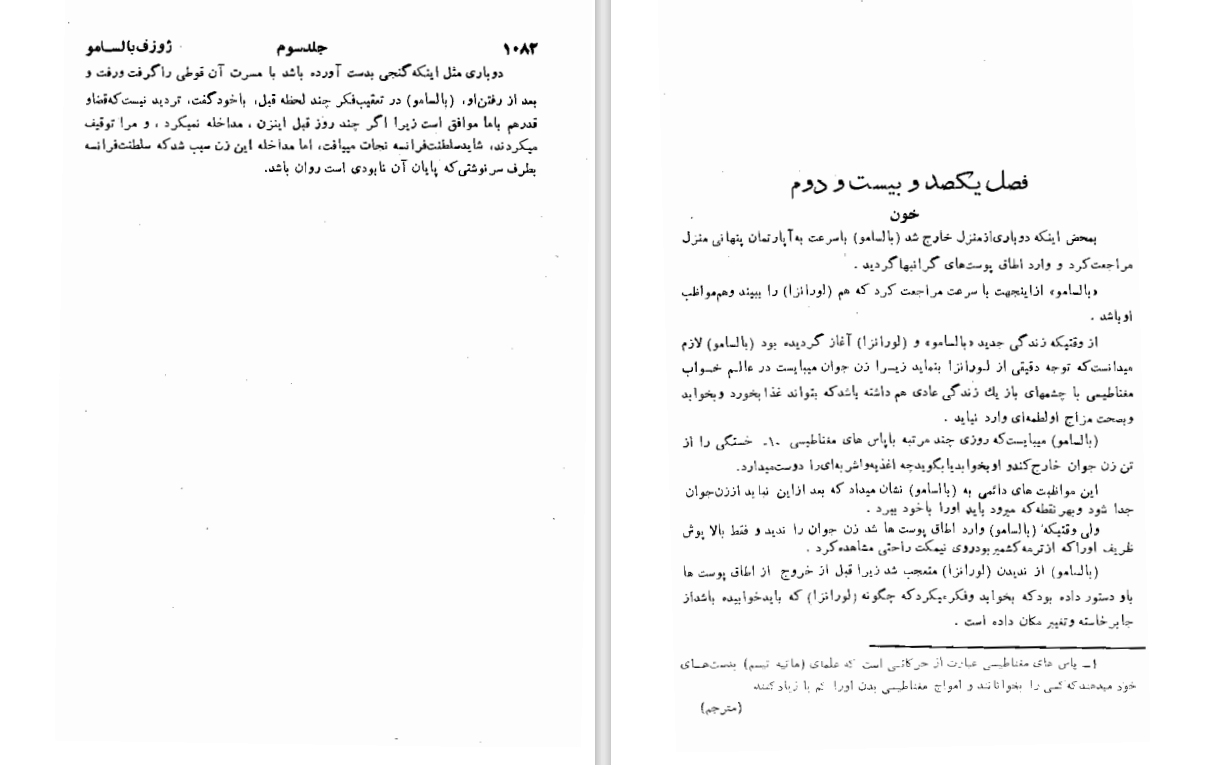 ۱۰۸۲ جلدسوم ژوزف‌بالسامو
دوباری مثل اینکه گنجی بدست آورده باشد با مسرت آن قوطی را گرفت و رفت و
بعد از رفتن او، (بالسامو) در تعقیب فکر چند لحظه قبل، باخود گفت، تردید نیست که قضا و
قدرهم باما موافق است زیرا اگر چند روز قبل اینزن، مداخله نمیکرد، و مرا توقیف
میکردند، شاید سلطنت فرانسه نجات مییافت، اما مداخله این زن سبب شد که سلطنت فرانسه
بطرف سرنوشتی که پایان آن نابودی است روان باشد.
فصل یکصد و بیست و دوم
خون
بمحض اینکه دوباری از منزل خارج شد (بالسامو) باسرعت به آپارتمان پنهانی منزل
مراجعت کرد و وارد اطاق پوست‌های گرانبها گردید .
«بالسامو» از اینجهت با سرعت مراجعت کرد که هم (لورانزا) را ببیند و هم مواظب
او باشد .
از وقتیکه زندگی جدید «بالسامو» و (لورانزا) آغاز گردیده بود (بالسامو) لازم
میدانست که توجه دقیقی از لورانزا بنماید زیرا زن جوان میبایست در عالم خواب
مغناطیسی با چشمهای باز یك زندگی عادی هم داشته باشد که بتواند غذا بخورد و بخوابد
و بصحت مزاج او لطمه‌ای وارد نیاید .
(بالسامو) میبایست که روزی چند مرتبه با پاس های مغناطیسی -۱- خستگی را از
تن زن جوان خارج کند و او بخوابد یا بگوید چه اغذیه و اشربه‌ای را دوست میدارد.
این مواظبت های دائمی به (بالسامو) نشان میداد که بعد از این نباید از زن جوان
جدا شود و بهر نقطه که میرود باید او را با خود ببرد .
ولی وقتیکه (بالسامو) وارد اطاق پوست ها شد زن جوان را ندید و فقط بالا پوش
ظریف او را که از ترمه کشمیر بود روی نیمکت راحتی مشاهده کرد .
(بالسامو) از ندیدن (لورانزا) متعجب شد زیرا قبل از خروج از اطاق پوست ها
باو دستور داده بود که بخوابد و فکر میکرد که چگونه (لورانزا) که باید خوابیده باشد از
جا برخاسته و تغییر مکان داده است .
۱ـ پاس های مغناطیسی عبارت از حرکاتی است که علمای (مانیه تیسم) بدست‌های
خود میدهند که کسی را بخوابانند و امواج مغناطیسی بدن او را کم یا زیاد کنند
(مترجم)